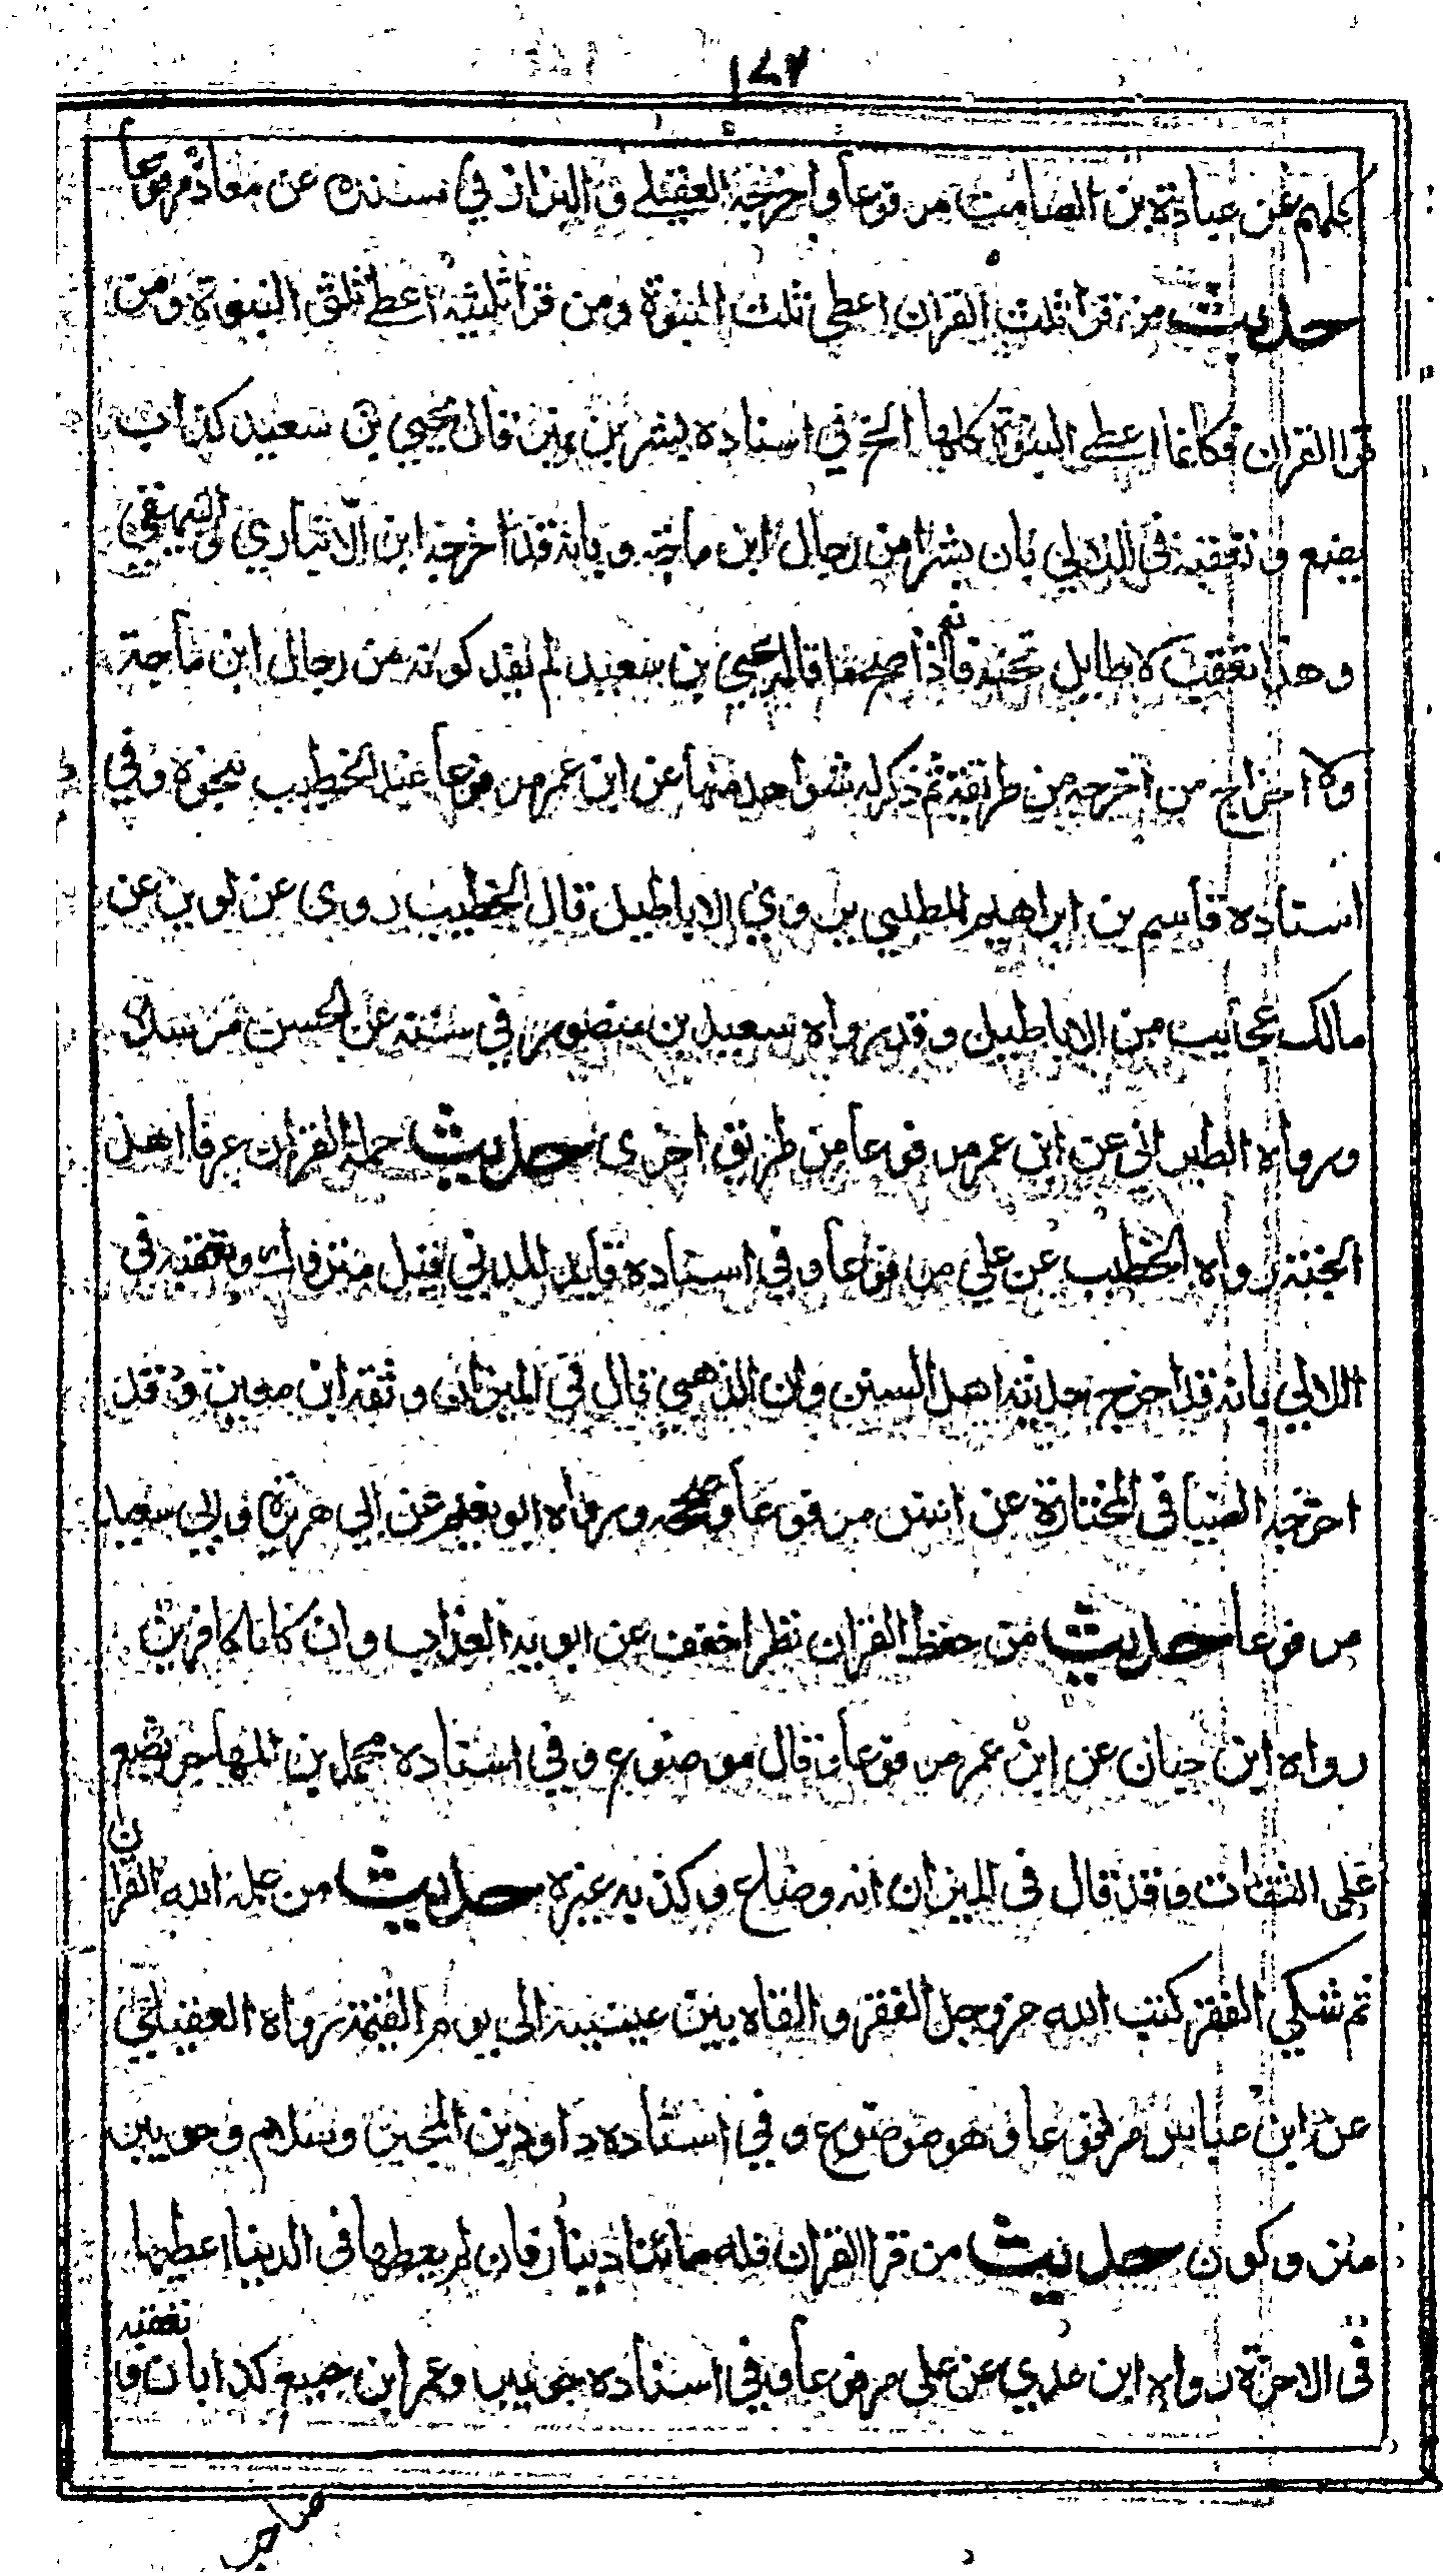 ١٨٧
كلهم عن عبادة بن الصامت مرفوعا واخرجه العقيلي و البزار في مسنده عن معاذ مرفوعا
حديث من قرا ثلث القران اعطي ثلث النبوة ومن قرا ثلثيه اعطي ثلثي النبوة ومن
قرا القران فكانما اعطي النبوة كلها الخ في اسناده بشر بن نمير قال يحيي بن سعيد كذاب
يضع و تعقبه في اللالي بان بشرا من رجال ابن ماجه و بانه قد اخرجه ابن الانباري والبيهقي
وهذا تعقب لا طايل تحته فانه اذا صح ما قاله يحيي بن سعيد لم يفد كونه من رجال ابن ماجة
ولا اخراج من اخرجه من طريقه ثم ذكر له شواهد منها عن ابن عمر مرفوعا عند الخطيب بنحوه وفي
اسناده قاسم بن ابراهيم الملطي يروي الاباطيل قال الخطيب روى عن لوين عن
مالك عجائب من الاباطيل وقد رواه سعيد بن منصور في سننه عن الحسن مرسلا
ورواه الطبراني عن ابن عمر مرفوعا من طريق اخرى حديث حملة القران عرفا اهل
الجنة رواه الخطيب عن علي مرفوعا وفي اسناده فايد المدني قيل متروك وتعقبه في
اللالي بانه قد اخرج حديثه اهل السنن وان الذهبي قال في الميزان وثقه ابن معين وقد
اخرجه الضيا في المختارة عن انس مرفوعا وصححه ورواه ابو نعيم عن ابي هريرة وابي سعيد
مرفوعا حديث من حفظ القران نظرا خفف عن ابويه العذاب وان كانا كافرين
رواه ابن حبان عن ابن عمر مرفوعا وقال موضوع وفي اسناده محمد بن المهاجر يضع
على الثقات وقد قال في الميزان انه وضاع وكذبه غيره حديث من علمه الله القران
ثم شكي الفقر كتب الله عزوجل الفقر والفاه بين عينيه الى يوم القيمة رواه العقيلي
عن ابن عباس مرفوعا وهو موضوع وفي اسناده داود بن المحبر وسلام وجويبر
متروكون حديث من قرا القران فله مائتا دينار فان لم يعطها في الدنيا اعطيها
في الاخرة رواه ابن عدي عن علي مرفوعا وفي اسناده جويبر وعمر ابن صبيح كذابان و تعقبه